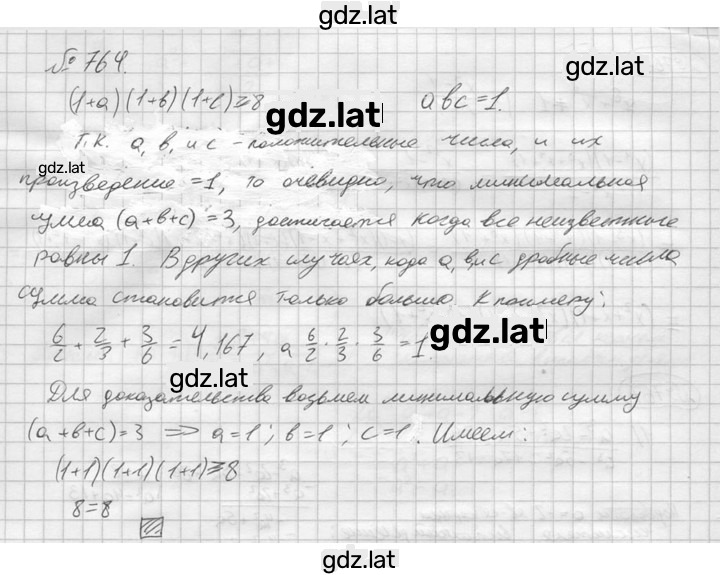 gdz.lat
№ 764.
gdz.lat
(1+a)(1+b)(1+c)≥8 abc=1.
gdz.lat
Т.к. a, b, и c - положительные числа, и их
gdz.lat
произведение =1, то очевидно, что минимальная
сумма (a+b+c)=3, достигается когда все неизвестные
равны 1. В других случаях, кода a, b, c дробные числа
сумма становится только больше. К примеру:
6/2 + 2/3 + 3/6 = 4,167, а 6/2 · 2/3 · 3/6 = 1.
gdz.lat
gdz.lat
Для доказательства возьмем минимальную сумму
(a+b+c)=3 => a=1; b=1; c=1. Имеем:
(1+1)(1+1)(1+1)≥8
8=8
gdz.lat